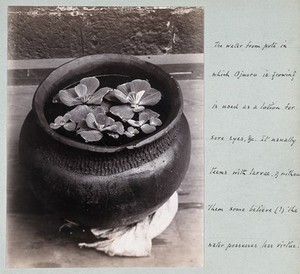 The water from pots in
which Ajmoro is growing
is used as a lotion for
sore eyes, &c. It usually
teems with larvae, & without
them some believe (?) the
water possesses less virtue.